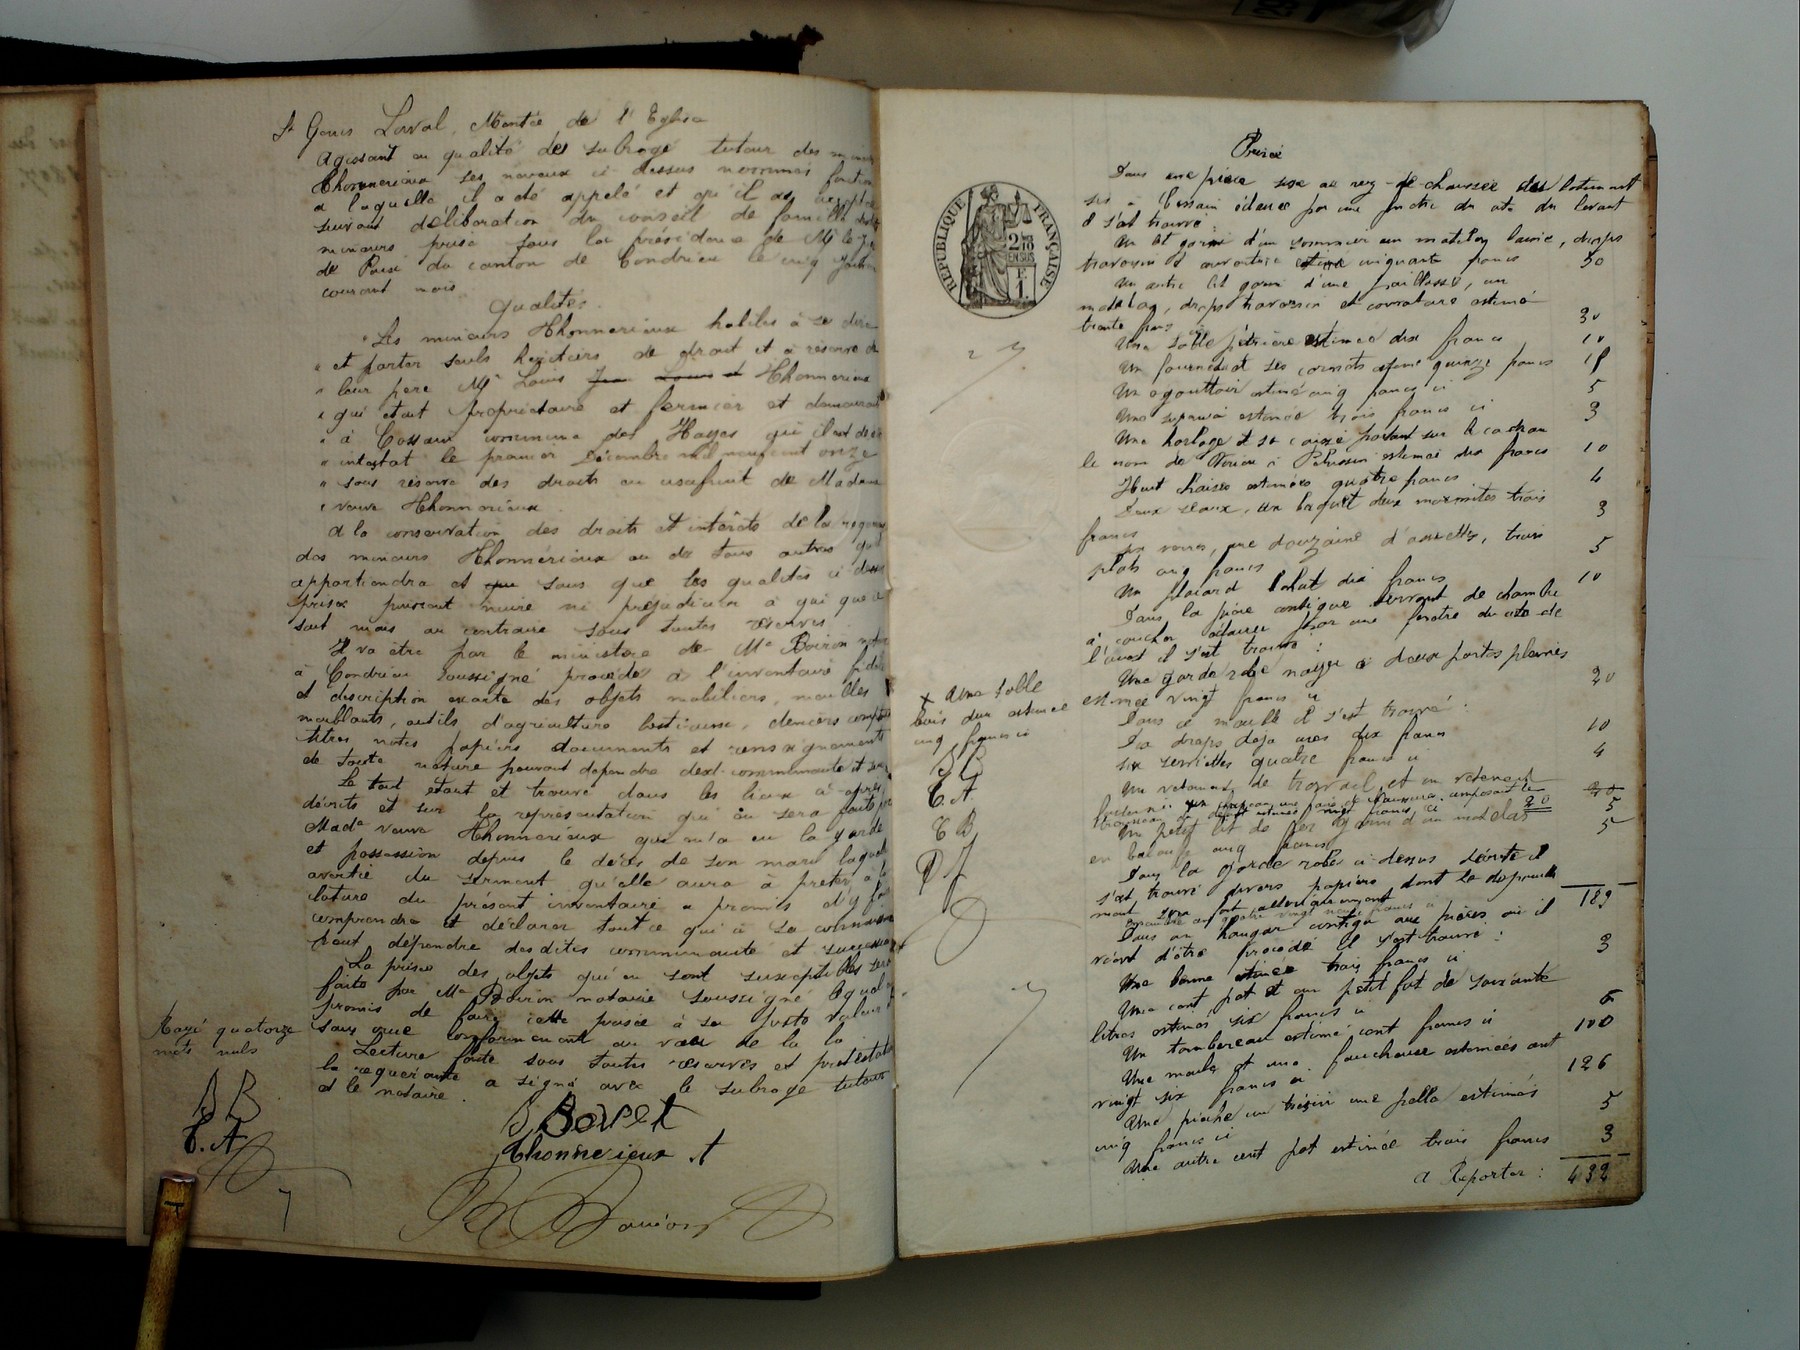 St Genis Laval, Montée de l'Eglise
Agissant en qualité de subrogé tuteur des
Thonnerieux ses neveux ci-dessus nommés fonction
à laquelle il a été appelé et qu'il a
suivant délibération du conseil de famille
mineurs prise sous la présidence de Mr le
de Paix du canton de Condrieu le cinq
courant mois
Qualités
" Les mineurs Thonnerieux habiles à se dire
" et porter seuls héritiers de droit et à réserve de
" leur père Mr Louis Thonnerieux
" qui était propriétaire et fermier et demeurait
" à Cossaux commune des Hayes qui est décédé
" intestat le premier Décembre mil neuf cent onze
" sous réserve des droits en usufruit de Madame
" veuve Thonnerieux
A la conservation des droits et intérêts de la
des mineurs Thonnerieux ou de tous autres qu'il
appartiendra et que sans que les qualités ci-dessus
prises puissent nuire ni préjudicier à qui que ce
soit mais au contraire sous toutes réserves
Il va être par le ministère de Me Boiron notaire
à Condrieu soussigné procédé à l'inventaire fidèle
et description exacte des objets mobiliers, meubles
meublants, outils d'agriculture bestiaux, deniers comptants
titres notes papiers documents et renseignements
de toute nature pouvant dépendre des communauté et
Le tout étant et trouvé dans les lieux ci-après
décrits et sur la représentation qui en sera faite par
Made veuve Thonnerieux qui en a eu la garde
et possession depuis le décès de son mari laquelle
avertie du serment qu'elle aura à prêter à la
clôture du présent inventaire a promis d'y faire
comprendre et déclarer tout ce qui à sa connaissance
peut dépendre desdites communauté et succession
La prisée des objets qui en sont susceptibles sera
faite par Me Boiron notaire soussigné lequel
promis de faire cette prisée à sa juste valeur
sans crue conformément au vœu de la loi
Lecture faite sous toutes réserves et protestations
la requérante a signé avec le subrogé tuteur
et le notaire.
Rayé quatorze
mots nuls
B B
T. A
B Bovet
Thonnerieux A
Prisée
Dans une pièce sise au rez-de-chaussée des bâtiment
sis à Cossaux éclairée par une fenêtre du côté du levant
il s'est trouvé :
Un lit garni d'un sommier un matelas laine, draps
traversin et couverture estimé cinquante francs 50
Un autre lit garni d'une paillasse, un
matelas, draps traversin et couverture estimé
trente francs ci 30
Une table pétrière estimée dix francs 10
Un fourneau et ses cornets estimé quinze francs 15
Un égouttoir estimé cinq francs ci 5
Une estimée trois francs ci 3
Une horloge et sa caisse portant sur le cadran
le nom de à Pélussin estimée dix francs 10
Huit chaises estimées quatre francs 4
Deux seaux, un baquet deux marmites trois
francs 3
verres, une douzaine d'assiettes, trois
plats cinq francs 5
Un placard dix francs 10
Dans la pièce contigue servant de chambre
à coucher éclairée par une fenêtre du côté de
l'ouest il s'est trouvé :
Une garde robe noyer à deux portes pleines
estimée vingt francs ci 20
Dans ce meuble il s'est trouvé :
draps déjà usés dix francs 10
six serviettes quatre francs ci 4
Un vêtement de travail, et un vêtement
20
20
5
Un petit lit de fer garni d'un matelas
en balouffe cinq francs 5
Dans la garde robe ci-dessus décrite il
s'est trouvé divers papiers dont le dépouille
ment sera fait ultérieurement 189
Dans un hangar contigu aux pièces où il
vient d'être procédé il s'est trouvé :
Une benne estimée trois francs ci 3
Une cent pot et un petit fût de soixante
litres estimés six francs ci 6
Un tombereau estimé cent francs ci 100
Une meule et une faucheuse estimées cent
vingt six francs ci 126
Une pioche un trésin une pelle estimés
cinq francs ci 5
Une autre cent pot estimée trois francs 3
A Reporter : 432
REPUBLIQUE FRANÇAISE
x Une table
bois dur estimée
cinq francs ci
B B
T. A